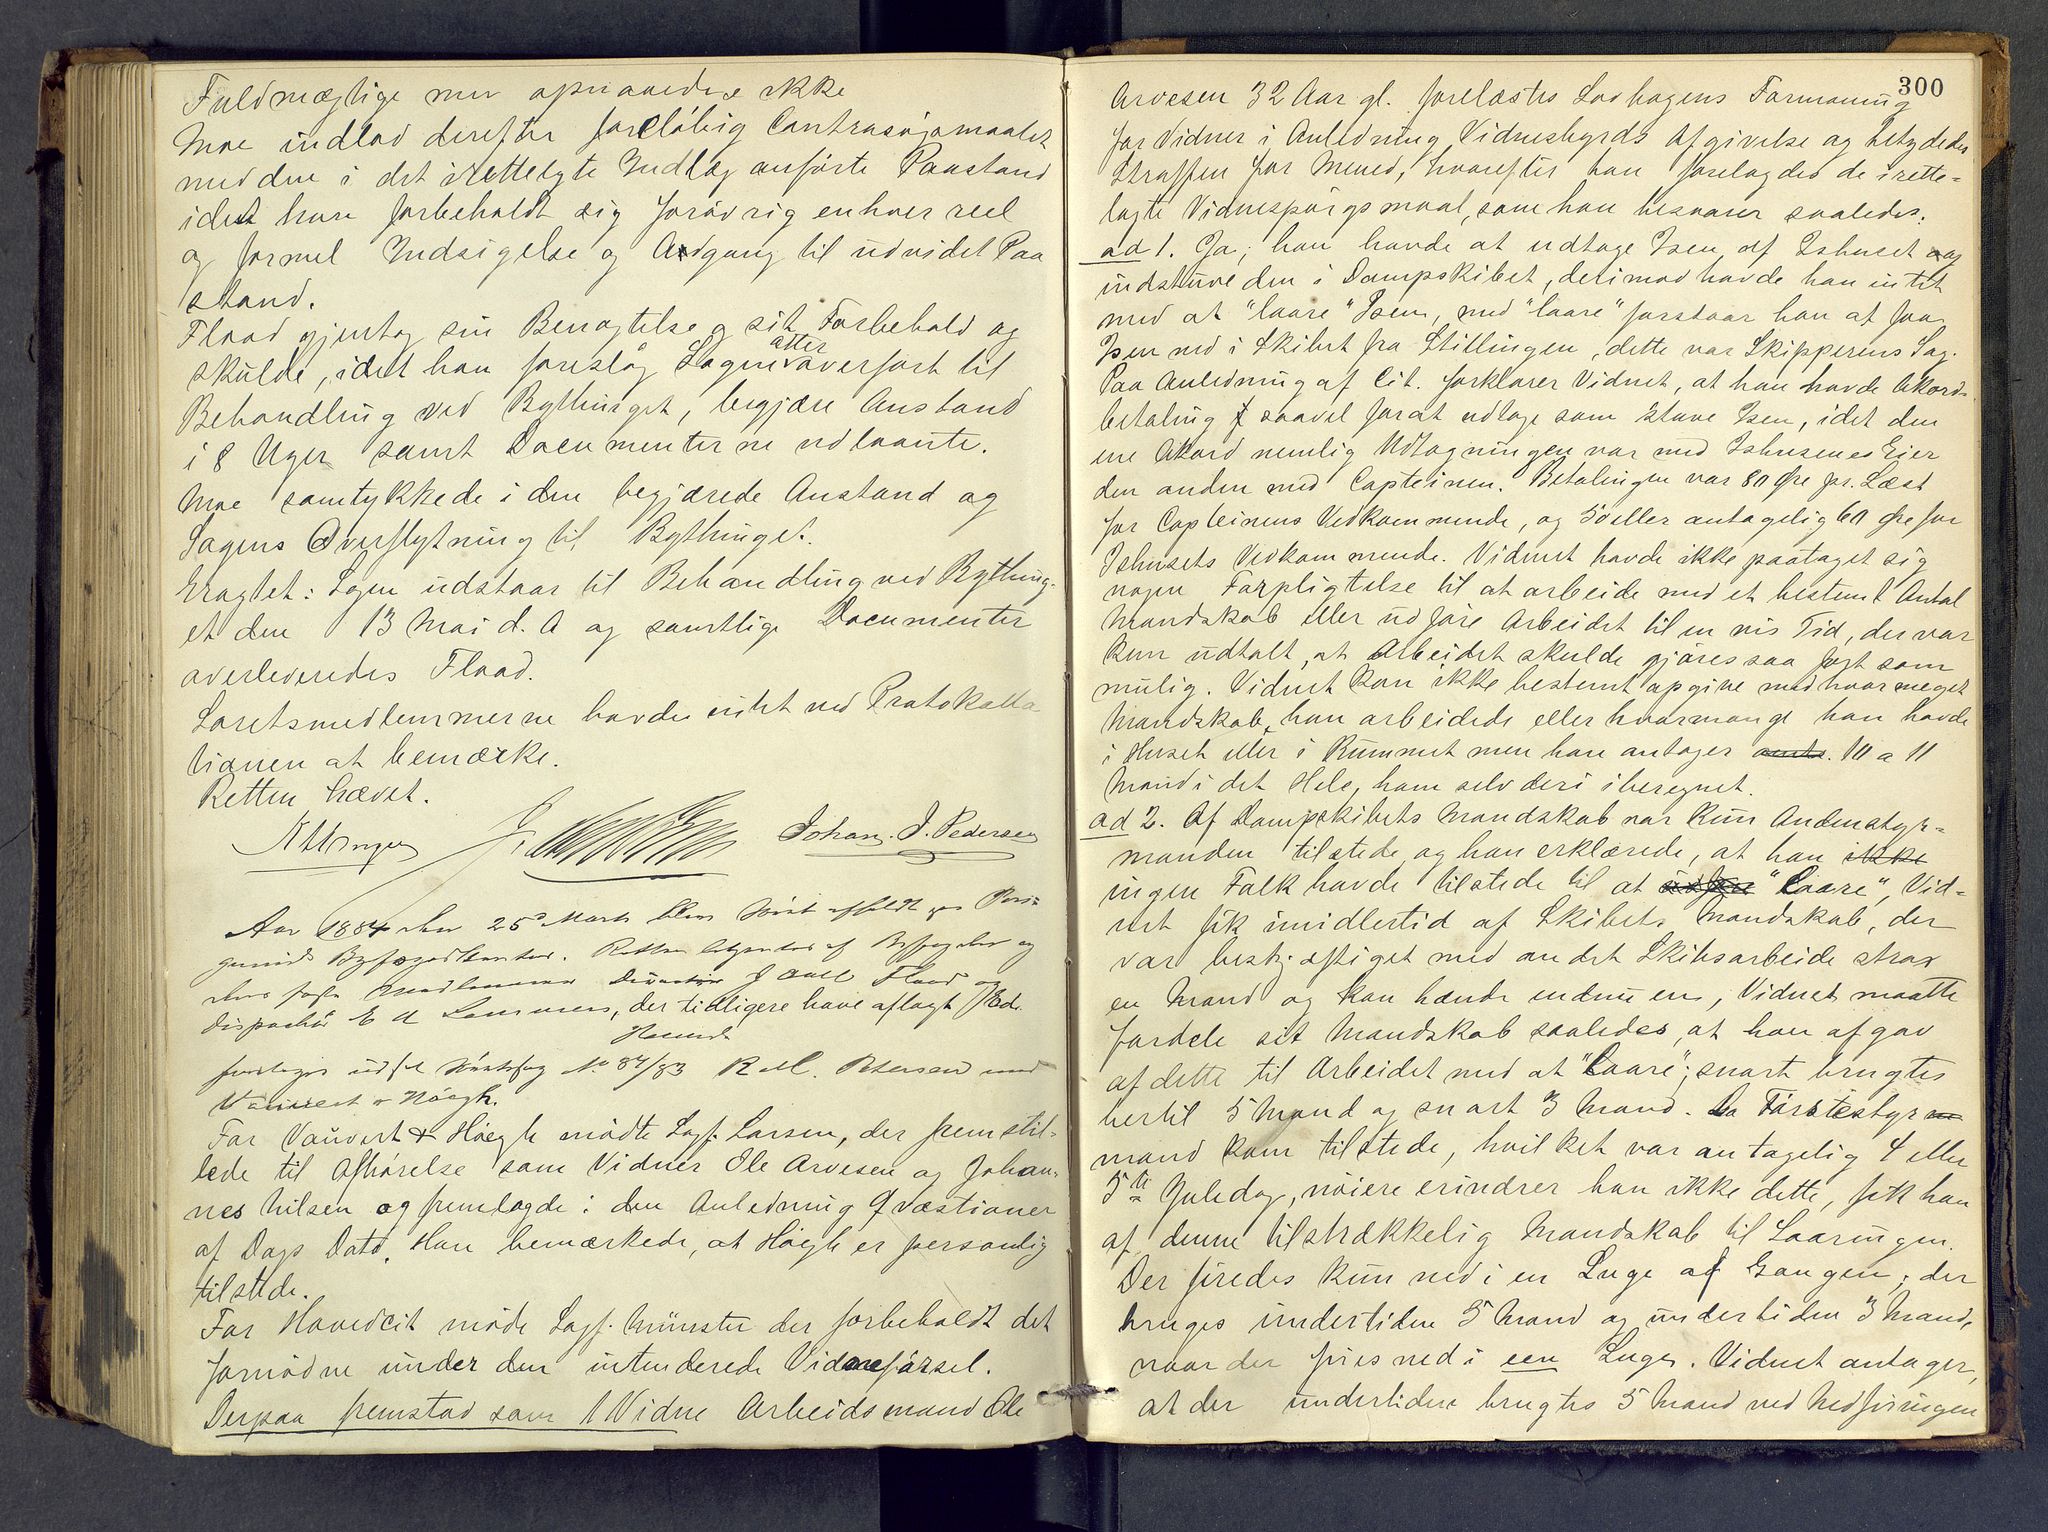 Fuldmægtige men opnaaedes ikke
Moe indlod derefter foreløbig Contrasøgsmaalet
med den i det irettelagte Indlæg anførte Paastand
idet han forbeholdt sig forøvrig enhver reel
og formel Indsigelse og Adgang til udvidet Paa
stand.
Flood gjentog sin Benægtelse og sit Forbehold og
skulde, idet han foreslog Sagen atter overført til
Behandling ved Bythinget, begjære Anstand
i 8 Uger samt Documenterne udlaante.
Moe samtykkede i den begjærede Anstand og
Sagens Overflytning til Bythinget.
Eragtet: Sagen udstaar til Behandling ved Bything-
et den 13 Mai d. A og samtlige Documenter
overleveredes Flood.
Søretsmedlemmerne havde intet ved Protokolla
tionen at bemærke.
Retten hævet.
Johan. J. Pedersen
Aar 1884 den 25d Marts blev Søret afholdt paa Pors-
grunds Byfogedkontor. Retten betjentes af Byfogden og
dens faste Medlemmer Directør J Aall Flood og
Dispachør E A Lammers, der tidligere have aflagt Ed.
Hvorved
foretoges udsat Søretssag No 84/83 R. M. Petersen mod
Vauvert & Høegh.
For Vauvert & Høegh mødte Sagf. Larsen, der fremstil-
lede til Afhørelse som Vidner Ole Arvesen og Johan-
nes Nilsen og fremlagde i den Anledning Qvæstioner
af Dags Dato. Han bemærkede, at Høegh er personlig
tilstede.
For Hovedcit møde Sagf. Münster der forbeholdt det
fornødne under den intenderede Vidneførsel.
Derpaa fremstod som 1 Vidne Arbeidsmand Ole
300
Arvesen 32 Aar gl. forelæstes Lovbogens Formaning
for Vidner i Anledning Vidnesbyrds Afgivelse og betydedes
Straffen for Mened, hvorefter han forelagdes de irette-
lagte Vidnespørgsmaal, som han besvarer saaledes:
ad 1. Ja; han havde at udtage Isen af Ishuset og
indstuve den i Dampskibet, derimod havde han intet
med at "laare" Isen, med "laare" forstaar han at faa
Isen ned i Skibet fra Stillingen, dette var Skipperens Sag.
Paa Anledning af Cit. forklarer Vidnet, at han havde Akords-
betaling saavel for at udtage som stuve Isen, idet den
ene Akord nemlig Udtagningen var med Ishusenes Eier
den anden med Capteinen. Betalingen var 80 Øre pr. Læst
for Capteinens Vedkommende, og 50 eller antagelig 60 Øre for
Ishusets Vedkommende. Vidnet havde ikke paataget sig
nogen Forpligtelse til at arbeide med et bestemt Antal
Mandskab eller udføre Arbeidet til en vis Tid, der var
kun udtalt, at Arbeidet skulde gjøres saa fort som
mulig. Vidnet kan ikke bestemt opgive med hvor meget
Mandskab, han arbeidede eller hvormange han havde
i Huset eller i Rummet men han antager 10 a 11
Mand i det Hele, ham selv deri iberegnet.
ad 2. Af Dampskibets Mandskab var kun Andenstyr-
manden tilstede og han erklærede, at han ikke
ingen Folk havde tilstede til at "Laare", Vid-
net fik imidlertid af Skibets Mandskab, der
var beskjæftiget med andet Skibsarbeide strax
en Mand og kan hænde endnu en, Vidnet maatte
fordele sit Mandskab saaledes, at han afgav
af dette til Arbeidet med at "Laare"; snart brugtes
hertil 5 Mand og snart 3 Mand. Da Førstestyr
mand kom tilstede, hvilket var antagelig 4 eller
5te Juledag, nøiere erindrer han ikke dette, fik han
af denne tilstrækkelig Mandskab til Laaringen.
Der firedes kun ned i en Luge af Gangen; der
bruges undertiden 5 Mand og undertiden 3 Mand,
naar der fires ned i een Luge. Vidnet antager,
at der undertiden brugtes 5 Mand ved Nedfiringen